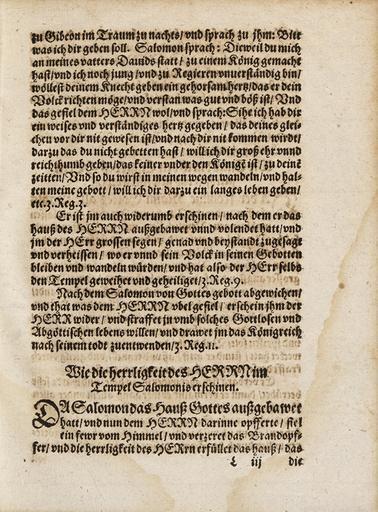 zu Gibeon im Traum zu nachts/ vnd sprach zu jhm: Bitt
was ich dir geben soll. Salomon sprach: Dieweil du mich
an meines vatters Dauids statt/ zu einem König gemacht
hast/ vnd ich noch jung/ vnd zu Regieren vnuerständig bin/
wöllest deinem Knecht geben ein gehorsam hertz/ das er dein
Volck richten möge/ vnd verstan was gut vnd böß ist/ Vnd
das gefiel dem HERRN wol/ vnd sprach: Sihe ich hab dir
ein weises vnd verständiges hertz gegeben/ das deines glei-
chen vor dir nit gewesen ist/ vnd nach dir nit kommen wirdt/
darzu das du nicht gebetten hast/ will ich dir groß ehr vnnd
reichthumb geben/ das keiner vnder den Königē ist/ zu deinē
zeitten/ Vnd so du wirst in meinen wegen wandeln/ vnd hal-
ten meine gebott/ will ich dir darzu ein langes leben geben/
etc. 3. Reg. 3.
Er ist jm auch widerumb erschinen/ nach dem er das
hauß des HERRN außgebawet vnnd volendet hatt/ vnd
jm der HErr grossen segen/ genad vnd beystandt zugesagt
vnd verheissen/ wo er vnnd sein Volck in seinen Gebotten
bleiben vnd wandeln würden/ vnd hat also der HErr selbs
den Tempel geweihet vnd geheiliget/ 3. Reg. 9.
Nach dem Salomon von Gottes gebott abgewichen/
vnd that was dem HERRN vbel gefiel/ erschein jhm der
HERR wider/ vnd straffet jn vmb solches Gottlosen vnd
Abgöttischen lebens willen/ vnd drawet jm das Königreich
nach seinem todt zuentwenden/ 3. Reg. 11.
Wie die herrligkeit des HERRN im
Tempel Salomonis erschinen.
DA Salomon das Hauß Gottes außgebawet
hatt/ vnd nun dem HERRN darinne opfferte/ fiel
ein fewr vom Himmel/ vnd verzeret das Brandopf-
fer/ vnd die herrligkeit des HERrn erfüllet das hauß/ das
L iij die